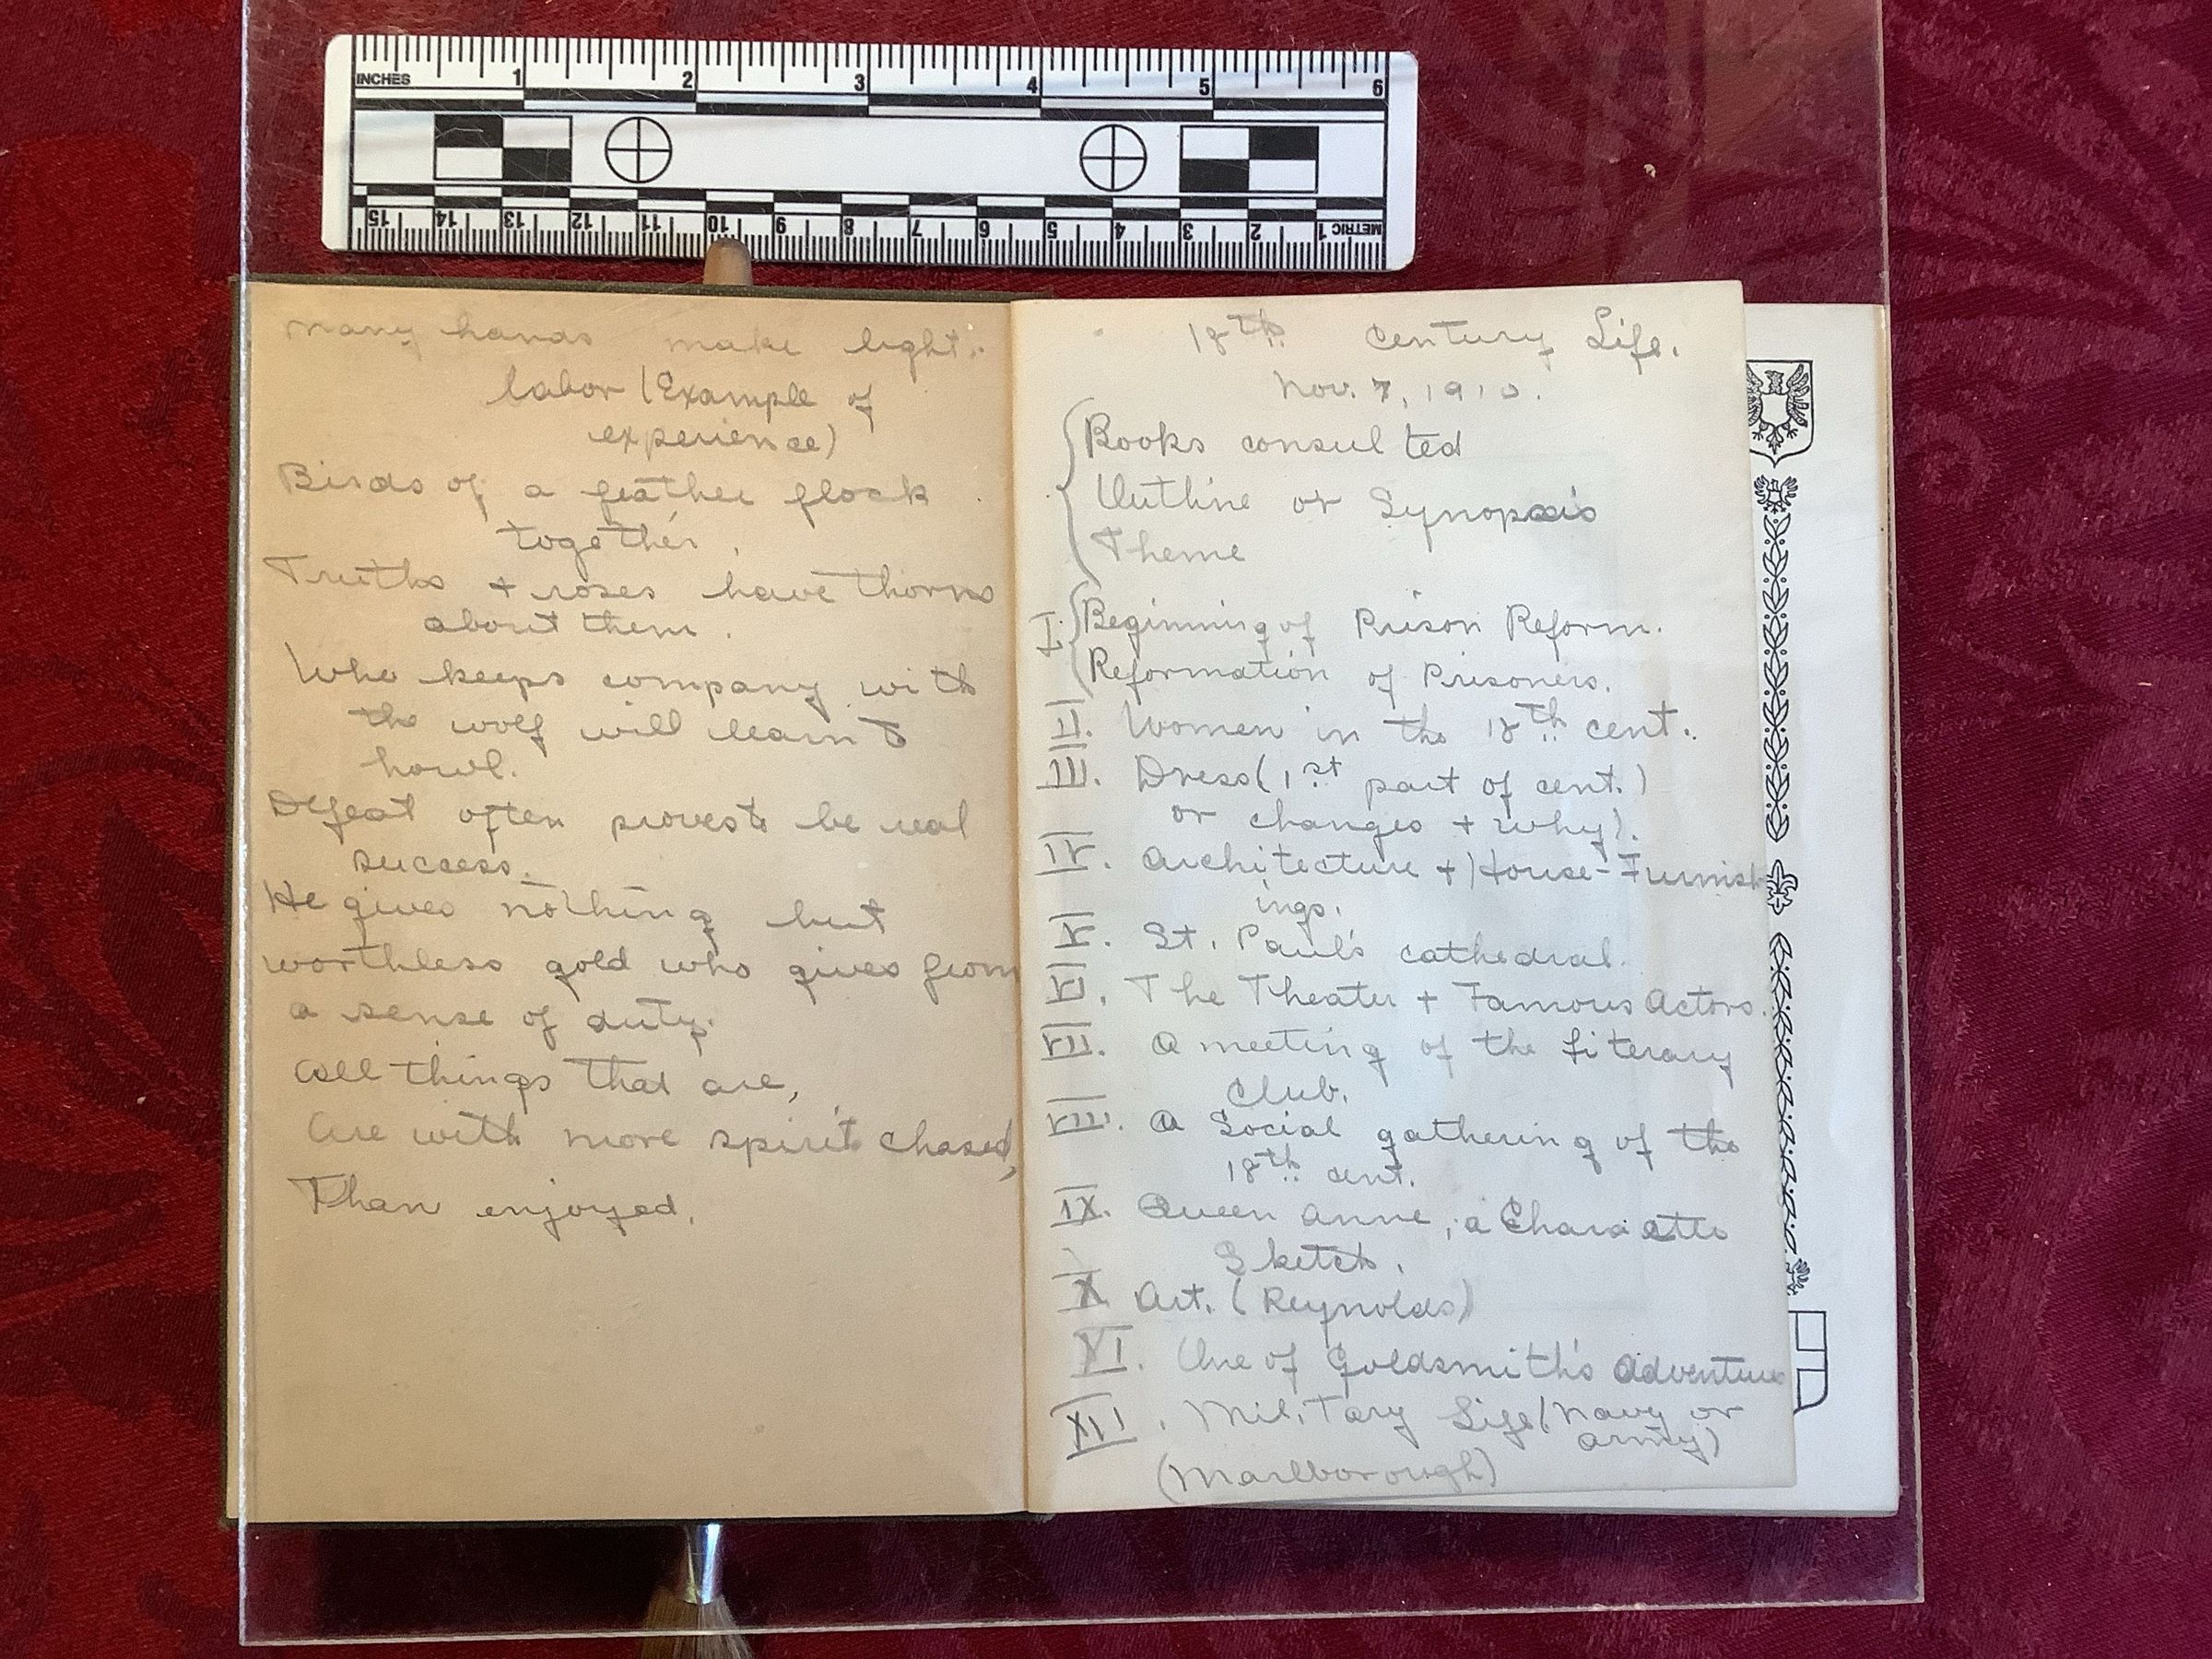 INCHES 1 2 3 4 5 6
15 14 13 12 11 10 9 8 7 6 5 4 3 2 1 METRIC
many hands make light
labor (Example of
experience)
Birds of a feather flock
together.
Truths + roses have thorns
about them.
Who keeps company with
the wolf will learn to
howl.
Defeat often proves to be real
success.
He gives nothing but
worthless gold who gives from
a sense of duty.
All things that are,
Are with more spirit chased,
Than enjoyed.
18th Century Life.
Nov. 7, 1910.
Books consulted
Outline or Synopsis
Theme
I. Beginning of Prison Reform.
Reformation of Prisoners.
II. Women in the 18th cent.
III. Dress (1st part of cent.)
or changes + why).
IV. Architecture + House-Furnish
ings.
V. St. Paul's cathedral.
VI. The Theater + Famous Actors.
VII. A meeting of the Literary
Club.
VIII. A Social gathering of the
18th cent.
IX. Queen Anne, a Character
Sketch.
X Art. (Reynolds)
XI. One of Goldsmith's Adventures
XII. Military Life (Navy or
army)
(Marlborough)